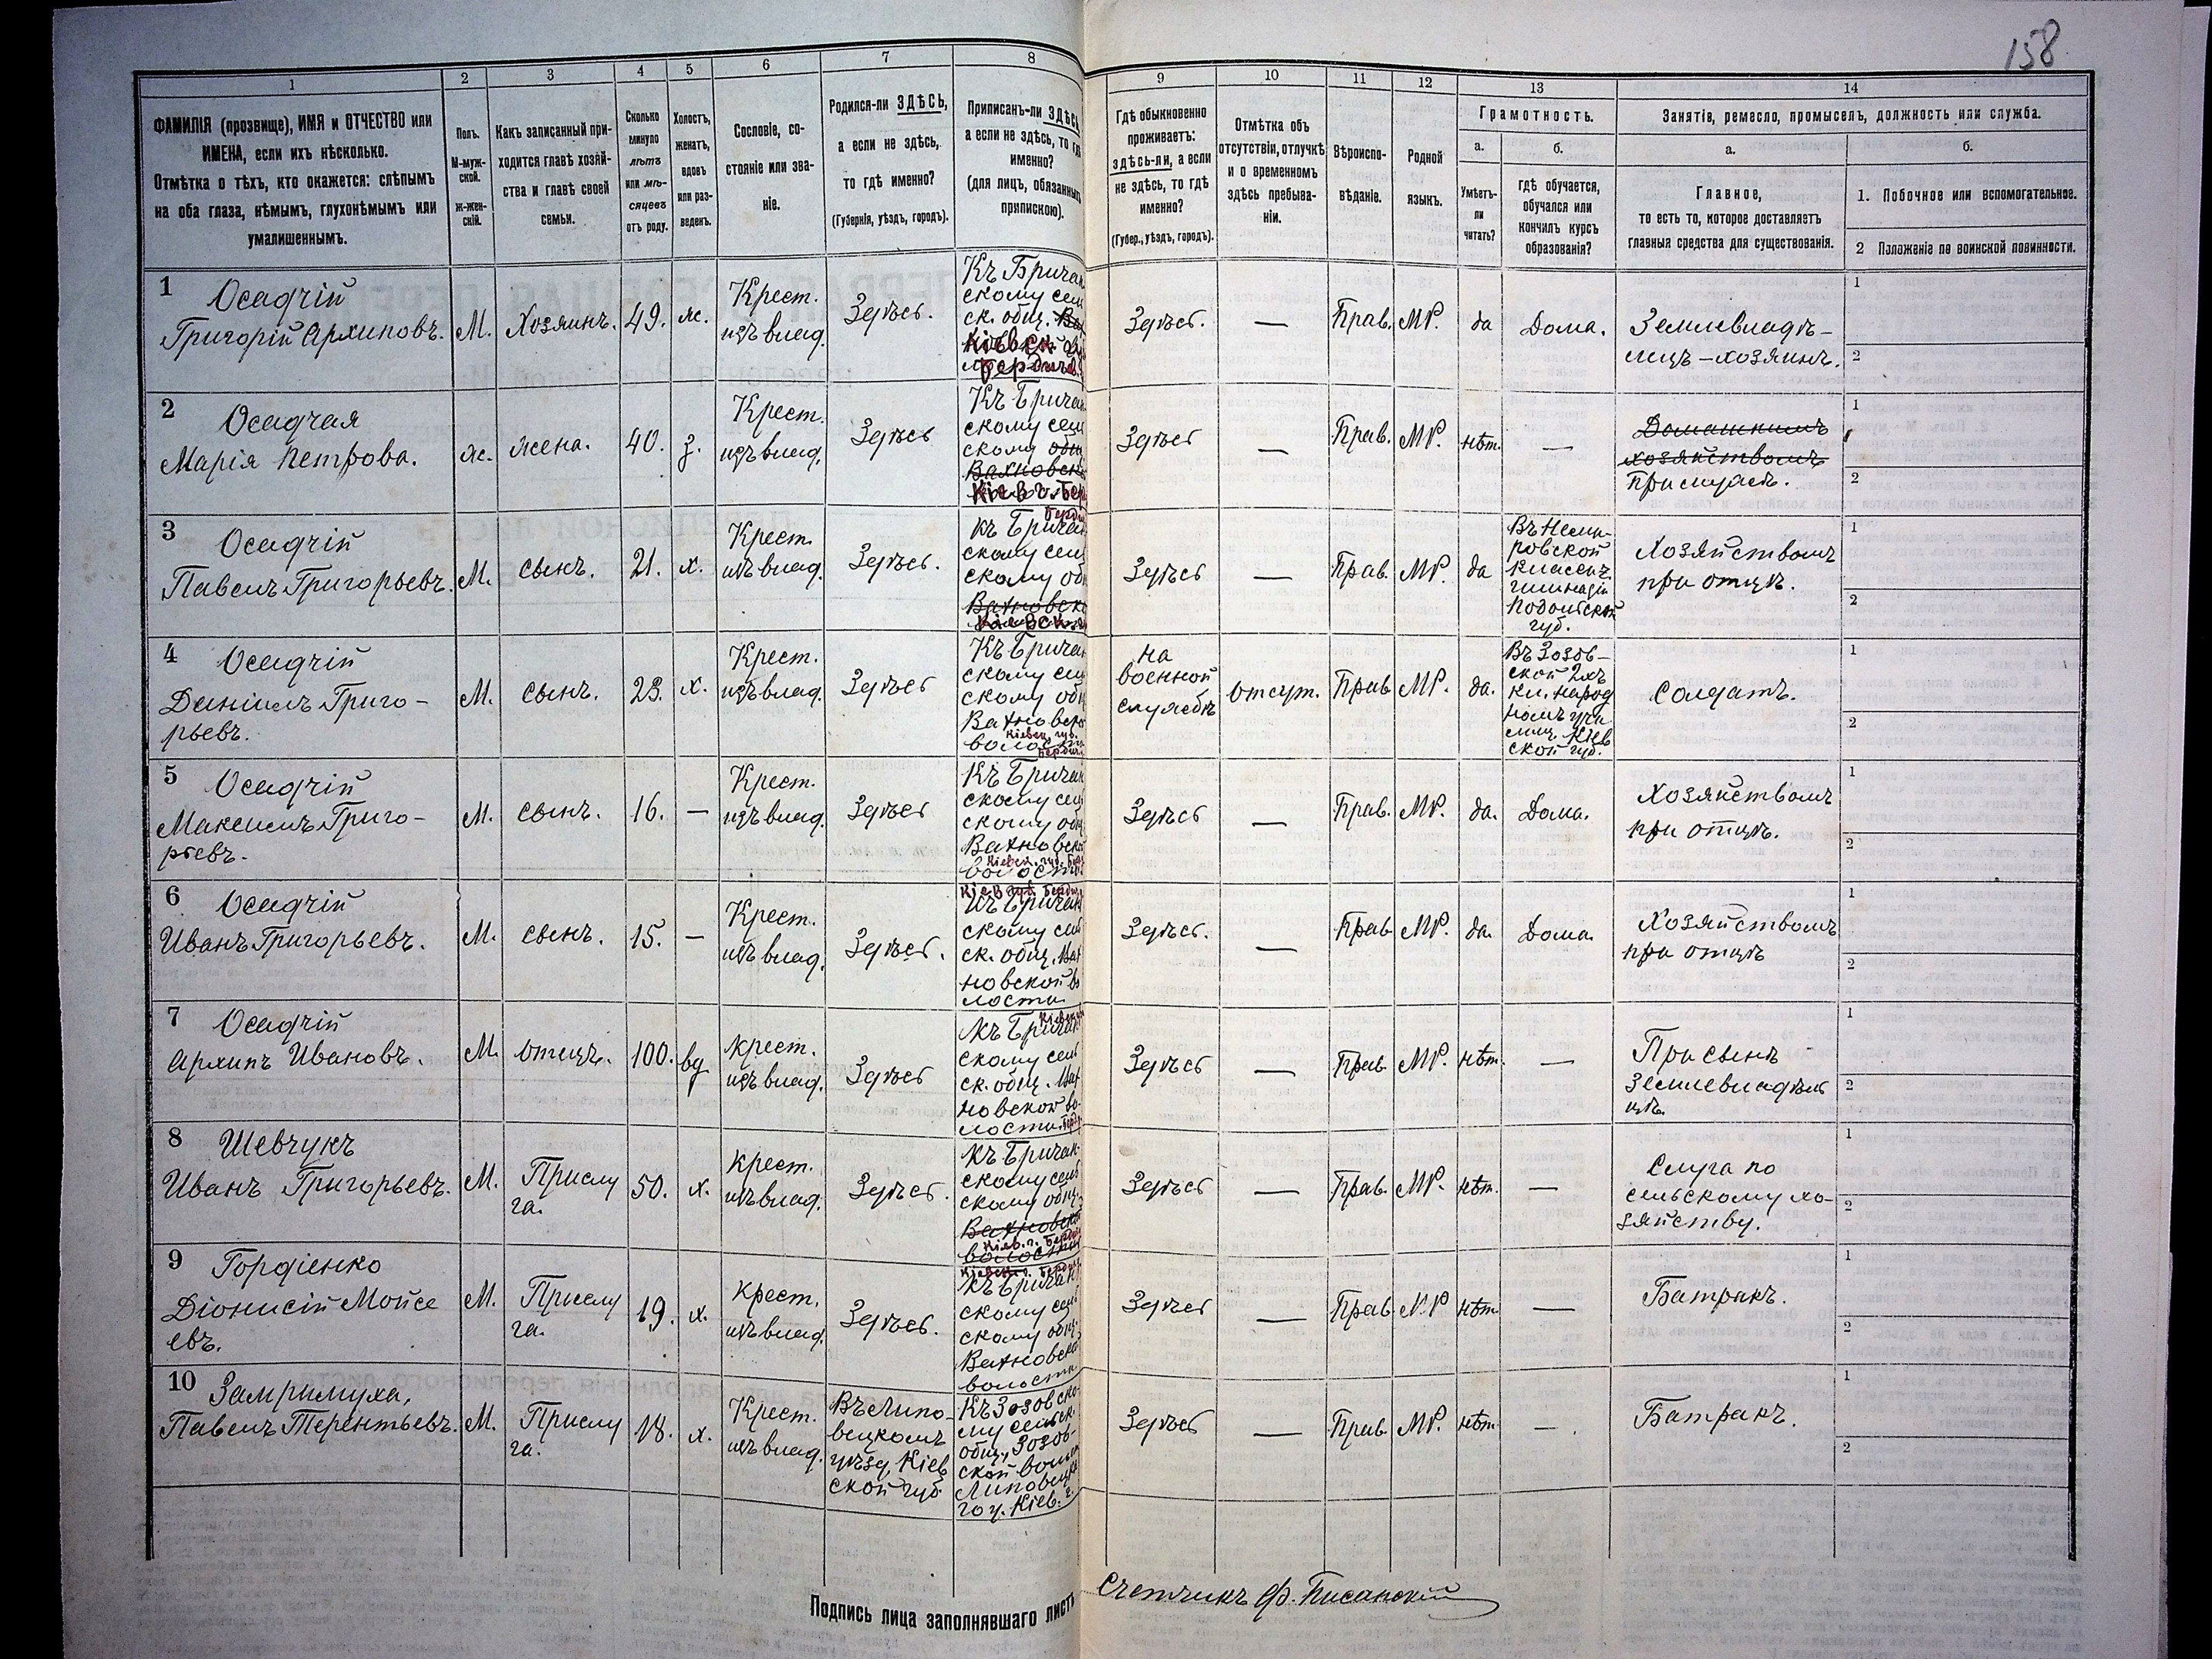 158
1 2 3 4 5 6 7 8 9 10 11 12 13 14
ФАМИЛІЯ (прозвище), ИМЯ и ОТЧЕСТВО или
ИМЕНА, если ихъ нѣсколько.
Отмѣтка о тѣхъ, кто окажется: слѣпымъ
на оба глаза, нѣмымъ, глухонѣмымъ или
умалишеннымъ.
Полъ.
М-муж-
ской.
Ж-жен-
скій.
Какъ записанный при-
ходится главѣ хозяй-
ства и главѣ своей
семьи.
Сколько
минуло
лѣтъ
или мѣ-
сяцевъ
отъ роду.
Холостъ,
женатъ,
вдовъ
или раз-
веденъ.
Сословіе, со-
стояніе или зва-
ніе.
Родился-ли ЗДѢСЬ,
а если не здѣсь,
то гдѣ именно?
(Губернія, уѣздъ, городъ).
Приписанъ-ли ЗДѢСЬ
а если не здѣсь, то гдѣ
именно?
(для лицъ, обязанныхъ
припискою).
Гдѣ обыкновенно
проживаетъ:
здѣсь-ли, а если
не здѣсь, то гдѣ
именно?
(Губер., уѣздъ, городъ).
Отмѣтка объ
отсутствіи, отлучкѣ
и о временномъ
здѣсь пребыва-
ніи.
Вѣроиспо-
вѣданіе.
Родной
языкъ.
Грамотность.
а.
Умѣетъ-
ли
читать?
б.
гдѣ обучается,
обучался или
кончилъ курсъ
образованія?
Занятіе, ремесло, промыселъ, должность или служба.
а.
Главное,
то есть то, которое доставляетъ
главныя средства для существованія.
б.
1. Побочное или вспомогательное.
2 Положеніе по воинской повинности.
1 Осадчій
Григорій Архиповъ.
М.
Хозяинъ.
49.
ж.
Крест.
изъ влад.
Здѣсь.
Къ Бричан
скому сель
ск. общ.
Здѣсь.
—
Прав.
МР.
да
Дома.
Землевладѣ-
лецъ - хозяинъ.
1
2
2 Осадчая
Марія Петрова.
ж.
жена.
40.
з.
Крест.
изъ влад.
Здѣсь
Къ Бричан
скому сель
скому общ
Вахновск
Здѣсь
—
Прав.
МР.
нѣт.
—
Домашнимъ
хозяйствомъ
при мужѣ.
1
2
3 Осадчій
Павелъ Григорьевъ.
М.
сынъ.
21.
х.
Крест.
изъ влад.
Здѣсь.
Къ Бричан
скому сель
скому общ
Вахновск
Здѣсь
—
Прав.
МР.
да
Въ Неми-
ровской
классич.
гимназіи
Подольской
губ.
Хозяйствомъ
при отцѣ.
1
2
4 Осадчій
Даніилъ Григо-
рьевъ.
М.
сынъ.
23.
х.
Крест.
изъ влад.
Здѣсь
Къ Бричан
скому сель
скому общ
Вахновск
Кіевск. губ.
волости
Бердич.
на
военной
службѣ
отсут.
Прав
МР.
да.
Въ Зозов-
ской 2хъ
кл. народ
номъ учи
лищ. Кіев
ской губ.
Солдатъ.
1
2
5 Осадчій
Максимъ Григо-
рьевъ.
М.
сынъ.
16.
—
Крест.
изъ влад.
Здѣсь
Къ Бричан
скому сель
скому общ
Вахновск
Кіевск. губ. Бер
волости
Здѣсь
—
Прав.
МР.
да.
Дома.
Хозяйствомъ
при отцѣ.
1
2
6 Осадчій
Иванъ Григорьевъ.
М.
сынъ.
15.
—
Крест.
изъ влад.
Здѣсь.
Кіев губ. Берд
Къ Бричан
скому сель
ск. общ. Вах
новской во
лости
Здѣсь.
—
Прав
МР.
да.
Дома.
Хозяйствомъ
при отцѣ
1
2
7 Осадчій
Архипъ Ивановъ.
М.
отецъ.
100.
вд
крест.
изъ влад.
Здѣсь
Къ Бричан
скому сель
ск. общ. Вах
новской во-
лости
Здѣсь
—
Прав.
МР.
нѣт.
—
При сынѣ
землевладѣль
цѣ.
1
2
8 Шевчукъ
Иванъ Григорьевъ.
М.
Прислу
га.
50.
х.
крест.
изъ влад.
Здѣсь.
Къ Бричан-
скому сель
скому общ.
Вахновской
Кіев. г. Бердич
волости
Здѣсь
—
Прав.
МР.
нѣт.
—
Слуга по
сельскому хо-
зяйству.
1
2
9 Гордіенко
Діонисій Мойсе
евъ.
М.
Прислу
га.
19.
х.
крест.
изъ влад.
Здѣсь.
Къ Бричан
скому сель
скому общ.
Вахновской
волости
Здѣсь
—
Прав.
МР
нѣт.
—
Батракъ.
1
2
10 Замримуха,
Павелъ Терентьевъ.
М.
Прислу
га.
18.
х.
Крест.
изъ влад.
Въ Липо-
вецкомъ
уѣзд. Кіев
ской губ
Къ Зозовско-
му сельск.
общ. Зозов-
ской волости
Липовецка
го у. Кіев. г.
Здѣсь
—
Прав.
МР.
нѣт
—.
Батракъ.
1
2
Подпись лица заполнявшаго листъ
Счетчикъ Ф. Писанскій